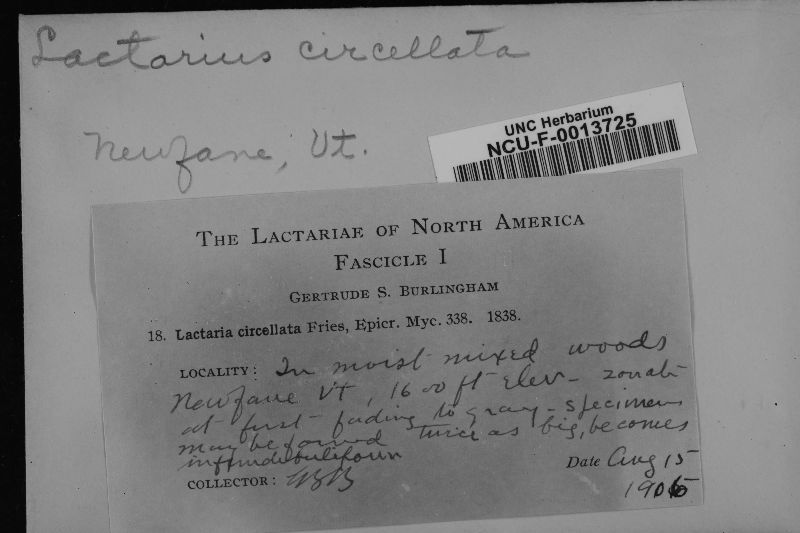 Lactarius circellata
Newfane, Vt.
UNC Herbarium
NCU-F-0013725
THE LACTARIAE OF NORTH AMERICA
FASCICLE I
GERTRUDE S. BURLINGHAM
18. Lactaria circellata Fries, Epicr. Myc. 338. 1838.
LOCALITY: In moist mixed woods
Newfane Vt, 1600 ft elev - zonate
at first - fading to gray - specimens
may be found twice as big, becomes
infundibuliform
COLLECTOR: GSB
Date Aug 15